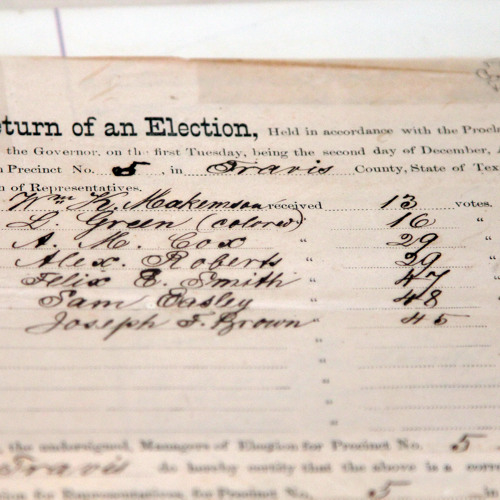 eturn of an Election, Held in accordance with the Procl
the Governor, on the first Tuesday, being the second day of December, A
Precinct No. 5, in Travis County, State of Tex
n of Representatives.
Wm K. Makemson received 13 votes.
L. Green (colored) " 16 "
A. M. Cox " 29 "
Alex. Roberts " 29 "
Felix E. Smith " 47 "
Sam Easley " 48 "
Joseph F. Brown " 45
"
"
"
, the undersigned, Managers of Election for Precinct No. 5
Travis do hereby certify that the above is a corre
tion for Representatives, for Precinct No. 5 in